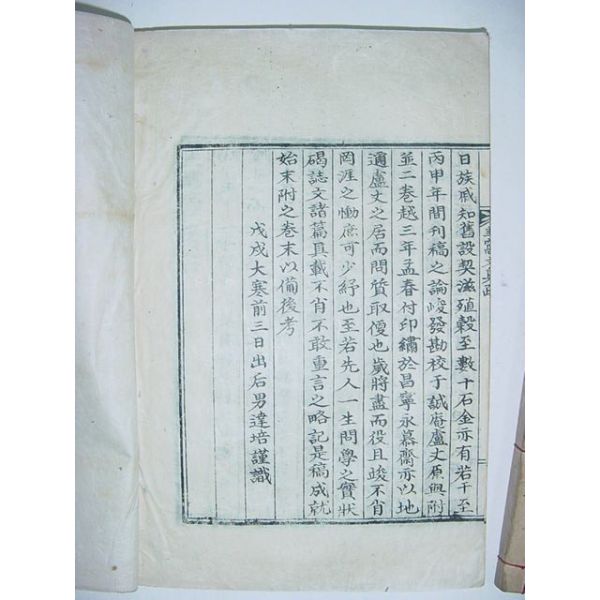 日族戚知舊設契滋殖穀至數十石金亦有若干至
丙申年間刊稿之論峻發勘校于誠庵盧丈原與附
並二卷越三年孟春付印繡於昌寧永慕齋亦以地
適盧丈之居而問質取便也歲將盡而役且竣不肖
罔涯之慟庶可少紓也至若先人一生問學之實狀
碣誌文諸篇具載不肖不敢重言之略記是稿成就
始末附之卷末以備後考
戊戌大寒前三日出后男達培謹識